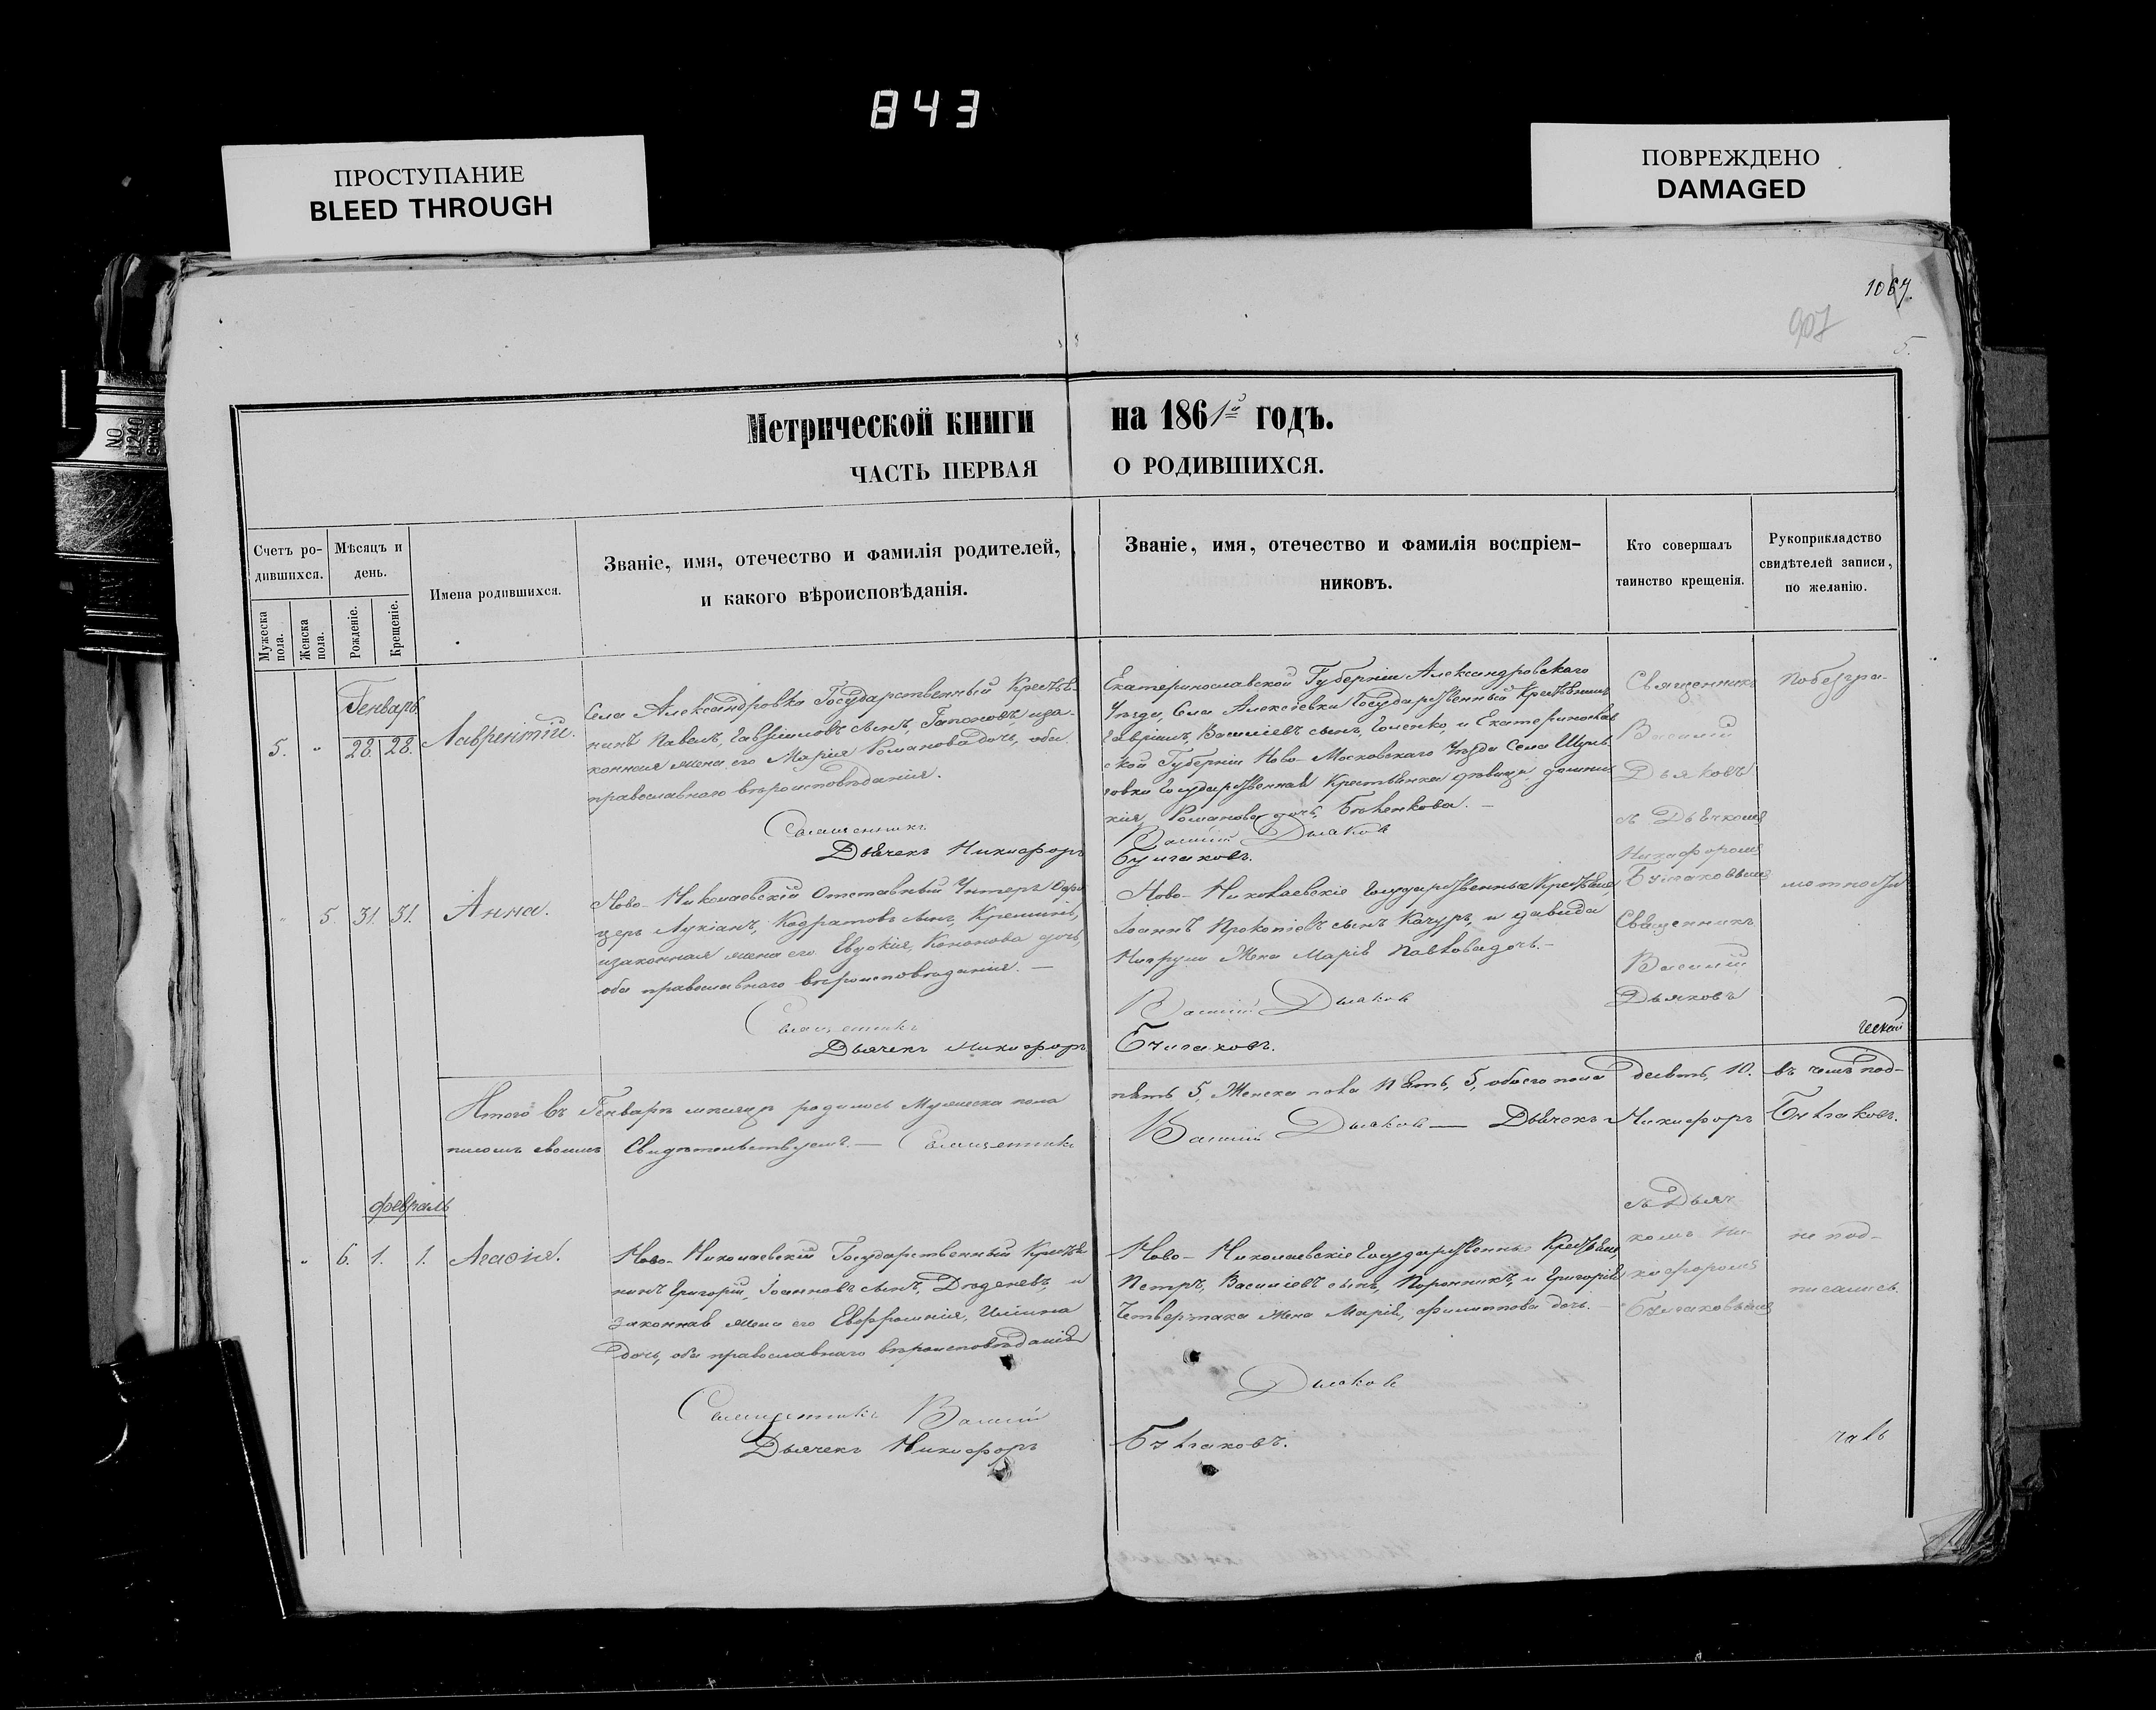 843
ПРОСТУПАНИЕ
BLEED THROUGH
ПОВРЕЖДЕНО
DAMAGED
1067.
907
5.
Метрической книги на 1861го годъ.
ЧАСТЬ ПЕРВАЯ О РОДИВШИХСЯ.
Счетъ ро-
дившихся.
Мужеска
пола.
Женска
пола.
Мѣсяцъ и
день.
Рожденіе.
Крещеніе.
Имена родившихся.
Званіе, имя, отечество и фамилія родителей,
и какого вѣроисповѣданія.
Званіе, имя, отечество и фамилія воспріем-
никовъ.
Кто совершалъ
таинство крещенія.
Рукоприкладство
свидѣтелей записи,
по желанію.
Генварь
5. " 28. 28. Лаврентій.
Села Александровка Государственный Крестья-
нинъ Павелъ, Гавріиловъ сынъ, Гапоновъ, и за-
конная жена его Марія Романова дочь, оба
православнаго вѣроисповѣданія.
Священникъ
Дьячекъ Никифоръ
Екатеринославской Губерніи Александровскаго
Уѣзда, Села Алексѣевки Государственный Крестьянинъ
Гавріилъ, Василіевъ сынъ, Голенко, и Екатеринослав
ской Губерніи Ново-Московскаго Уѣзда Села
Государственная Крестьянка дѣвица
Романова дочь,
Василій Дьяковъ
Священникъ
Василій
Дьяковъ
съ Дьячкомъ
Никифоромъ
Побезгра-
мотности
" 5. 31. 31. Анна.
Ново-Николаевскій Отставный Унтеръ Офи
церъ Лукіанъ, сынъ,
и законная жена его Евдокія, Кононова дочь,
оба православнаго вѣроисповѣданія. —
Священникъ
Дьячекъ Никифоръ
Ново-Николаевскіе Государственные Крестьяне
Іоаннъ Прокопіевъ сынъ Качуръ, и Давида
Жена Марія Павлова дочь. —
Василій Дьяковъ
Священникъ
Василій
Дьяковъ
Итого въ Генварѣ мѣсяцѣ родилось Мужеска пола
пять 5, Женска пола Пять, 5, обоего пола Десять, 10. въ чемъ под-
писомъ своимъ Свидѣтельствуемъ. — Священникъ
Василій Дьяковъ — Дьячекъ Никифоръ
февраль
" 6. 1. 1. Агафія.
Ново-Николаевскій Государственный Крестья
нинъ Григорій, Іоанновъ сынъ, и
законная жена его Евфросинія,
дочь, оба православнаго вѣроисповѣданія
Священникъ Василій
Дьячекъ Никифоръ
Ново-Николаевскіе Государственные Крестьяне
Петръ, Василіевъ сынъ, и Григорія
Четвертака Жена Марія, Филиппова дочь. —
Дьяковъ
съ Дьяч
комъ Ни-
кифоромъ
не под-
писались.